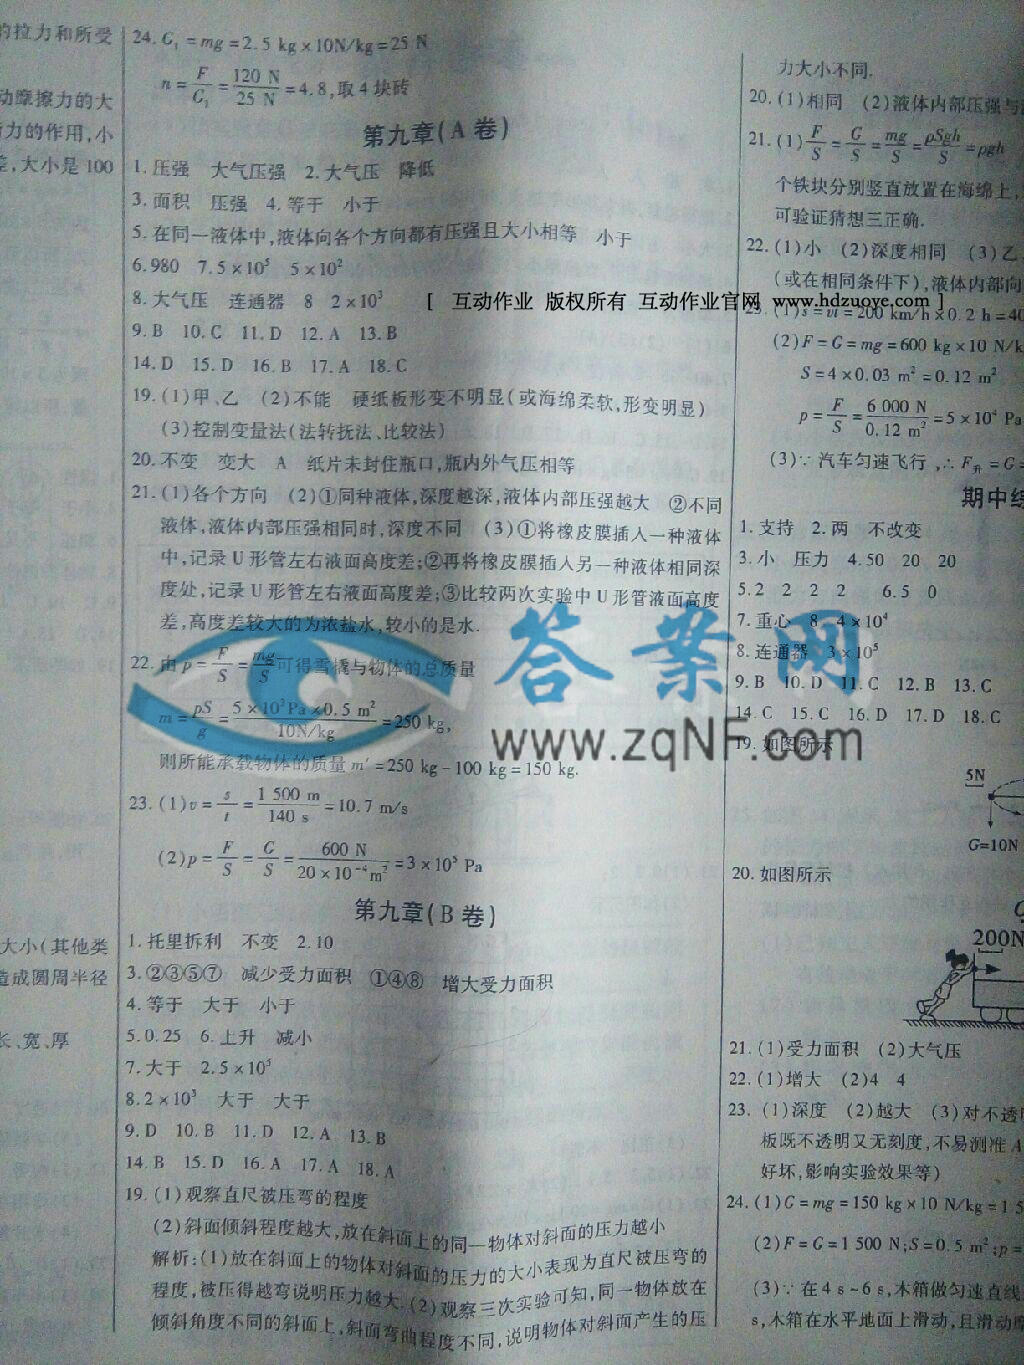 的拉力和所受
动摩擦力的大
力的作用,小
差,大小是100
大小(其他类
造成圆周半径
长、宽、厚
24. G₁=mg=2.5 kg×10N/kg=25 N
n=F/G₁=120 N/25 N=4.8,取4块砖
第九章(A卷)
1.压强 大气压强 2.大气压 降低
3.面积 压强 4.等于 小于
5.在同一液体中,液体向各个方向都有压强且大小相等 小于
6.980 7.5×10⁵ 5×10²
8.大气压 连通器 8 2×10³
9.B 10.C 11.D 12.A 13.B
14.D 15.D 16.B 17.A 18.C
19.(1)甲、乙 (2)不能 硬纸板形变不明显(或海绵柔软,形变明显)
(3)控制变量法(法转抚法、比较法)
20.不变 变大 A 纸片未封住瓶口,瓶内外气压相等
21.(1)各个方向 (2)①同种液体,深度越深,液体内部压强越大 ②不同
液体,液体内部压强相同时,深度不同 (3)①将橡皮膜插入一种液体
中,记录U形管左右液面高度差;②再将橡皮膜插入另一种液体相同深
度处,记录U形管左右液面高度差;③比较两次实验中U形管液面高度
差,高度差较大的为浓盐水,较小的是水.
22.由p=F/S=mg/S可得雪橇与物体的总质量
m=pS/g=5×10³Pa×0.5 m²/10N/kg=250 kg,
则所能承载物体的质量m′=250 kg-100 kg=150 kg.
23.(1)v=s/t=1 500 m/140 s=10.7 m/s
(2)p=F/S=G/S=600 N/20×10⁻⁴m²=3×10⁵ Pa
第九章(B卷)
1.托里拆利 不变 2.10
3.②③⑤⑦ 减少受力面积 ①④⑧ 增大受力面积
4.等于 大于 小于
5.0.25 6.上升 减小
7.大于 2.5×10⁵
8.2×10³ 大于 大于
9.D 10.B 11.D 12.A 13.B
14.B 15.D 16.A 17.A 18.A
19.(1)观察直尺被压弯的程度
(2)斜面倾斜程度越大,放在斜面上的同一物体对斜面的压力越小
解析:(1)放在斜面上的物体对斜面的压力的大小表现为直尺被压弯的
程度,被压得越弯说明压力越大.(2)观察三次实验可知,同一物体放在
倾斜角度不同的斜面上,斜面弯曲程度不同,说明物体对斜面产生的压
力大小不同.
20.(1)相同 (2)液体内部压强与
21.(1)F/S=G/S=mg/S=ρSgh/S=ρgh
个铁块分别竖直放置在海绵上,
可验证猜想三正确.
22.(1)小 (2)深度相同 (3)乙
(或在相同条件下),液体内部向
23.(1)s=vt=200 km/h×0.2 h=40
(2)F=G=mg=600 kg×10 N/k
S=4×0.03 m²=0.12 m²
p=F/S=6 000 N/0.12 m²=5×10⁴ Pa
(3)∵汽车匀速飞行,∴F升=G=
期中综
1.支持 2.两 不改变
3.小 压力 4.50 20 20
5.2 2 2 2 6.5 0
7.重心 8 4×10⁴
8.连通器 3×10⁵
9.B 10.D 11.C 12.B 13.C
14.C 15.C 16.D 17.D 18.C
19.如图所示
5N
G=10N
20.如图所示
200N
21.(1)受力面积 (2)大气压
22.(1)增大 (2)4 4
23.(1)深度 (2)越大 (3)对不透
板既不透明又无刻度,不易测准A
好坏,影响实验效果等)
24.(1)G=mg=150 kg×10 N/kg=1 5
(2)F=G=1 500 N;S=0.5 m²;p=
(3)∵在4 s~6 s,木箱做匀速直线
s,木箱在水平地面上滑动,且滑动摩
[ 互动作业 版权所有 互动作业官网 www.hdzuoye.com ]
答案网
www.zqNF.com